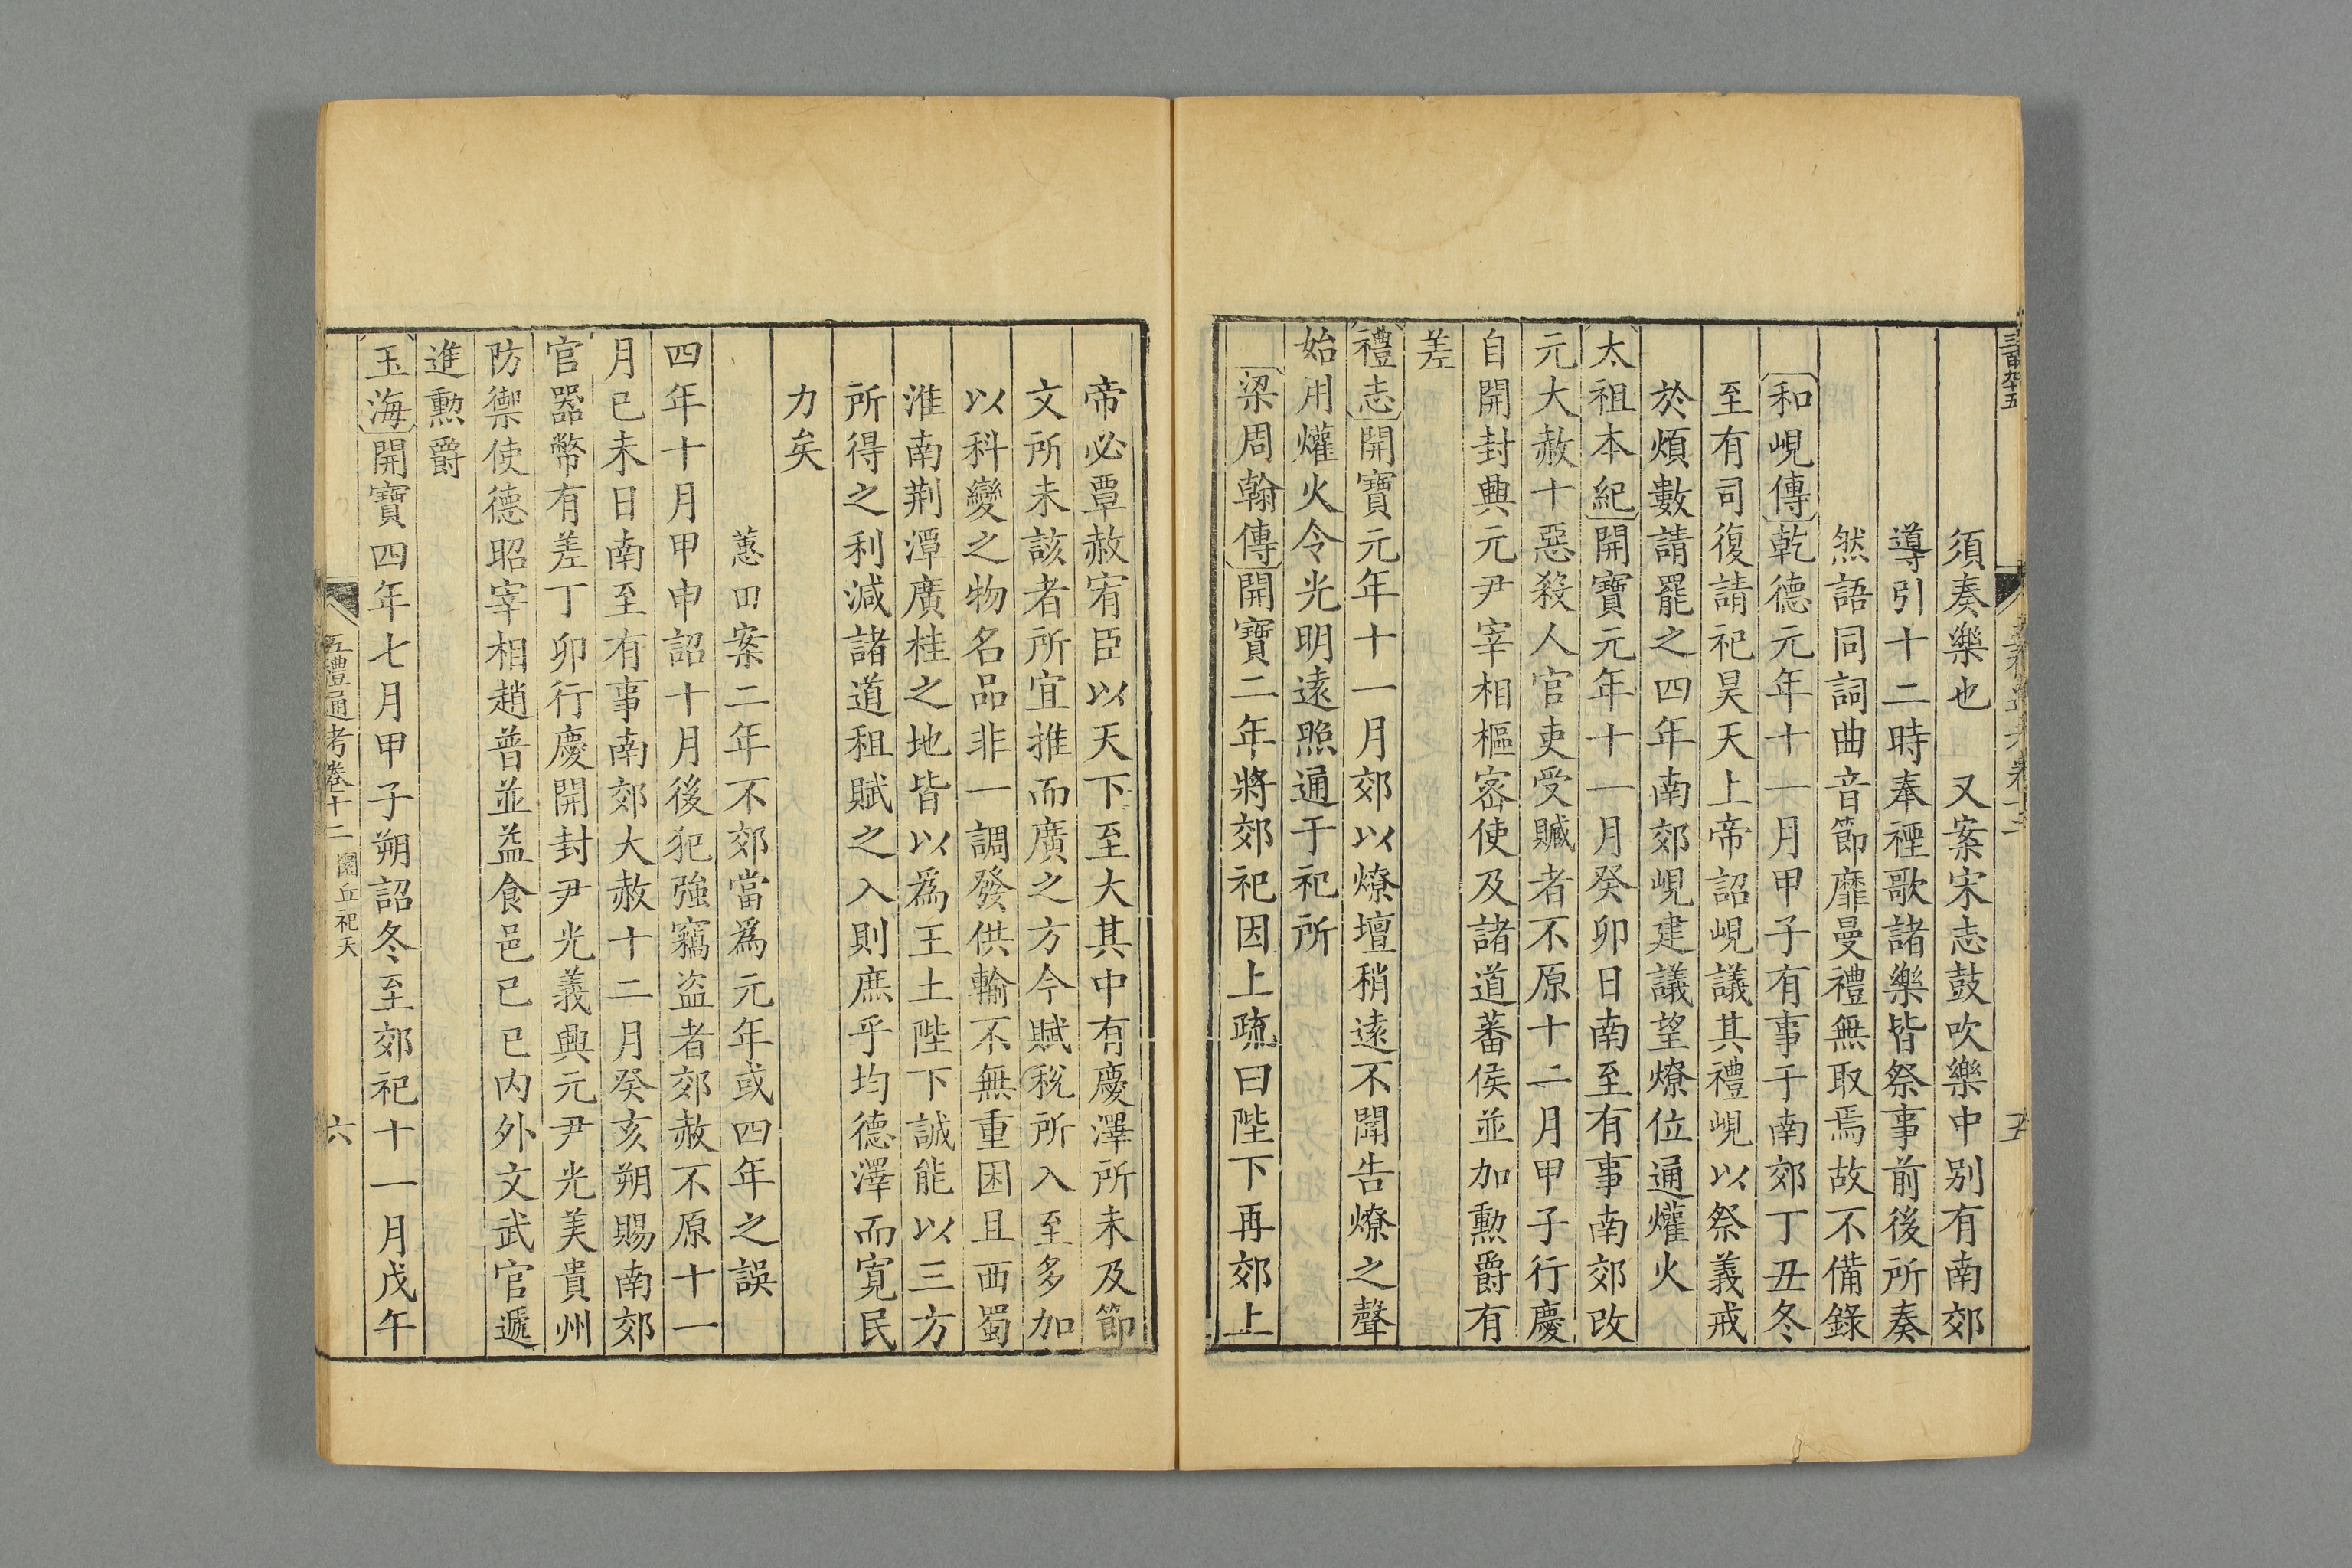 須奏樂也　又案宋志鼓吹樂中别有南郊
導引十二時奉禋歌諸樂皆祭事前後所奏
然語同詞曲音節靡曼禮無取焉故不備錄
和峴傳乾德元年十一月甲子有事于南郊丁丑冬
至有司復請祀昊天上帝詔峴議其禮峴以祭義戒
於煩數請罷之四年南郊峴建議望燎位通爟火
太祖本紀開寶元年十一月癸卯日南至有事南郊改
元大赦十惡殺人官吏受贓者不原十二月甲子行慶
自開封興元尹宰相樞密使及諸道蕃侯並加勳爵有
差
禮志開寶元年十一月郊以燎壇稍遠不聞告燎之聲
始用爟火令光明遠照通于祀所
梁周翰傳開寶二年將郊祀因上疏曰陛下再郊上
帝必覃赦宥臣以天下至大其中有慶澤所未及節
文所未該者所宜推而廣之方今賦稅所入至多加
以科變之物名品非一調發供輸不無重困且西蜀
淮南荆潭廣桂之地皆以爲王土陛下誠能以三方
所得之利減諸道租賦之入則庶乎均德澤而寬民
力矣
蕙田案二年不郊當爲元年或四年之誤
四年十月甲申詔十月後犯強竊盗者郊赦不原十一
月己未日南至有事南郊大赦十二月癸亥朔賜南郊
官器幣有差丁卯行慶開封尹光義興元尹光美貴州
防禦使德昭宰相趙普並益食邑己巳内外文武官遞
進勳爵
玉海開寶四年七月甲子朔詔冬至郊祀十一月戊午
五禮通考卷十二　圜丘祀天　六